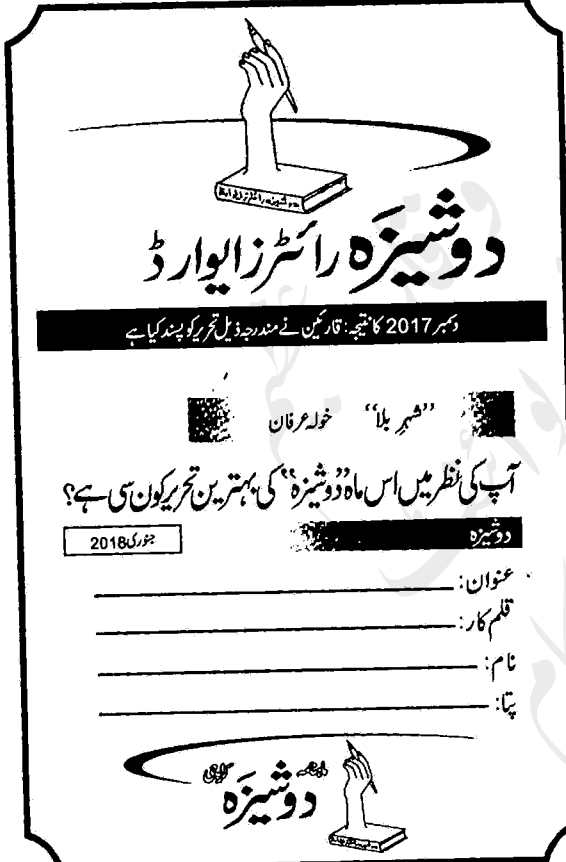 دوشیزہ رائٹرز ایوارڈ
دوشیزہ رائٹرز ایوارڈ
دسمبر 2017 کا نتیجہ: قارئین نے مندرجہ ذیل تحریر کو پسند کیا ہے
”شہرِ بلا“ خولہ عرفان
آپ کی نظر میں اس ماہ ”دوشیزہ“ کی بہترین تحریر کون سی ہے؟
دوشیزہ
جنوری 2018
عنوان:
قلم کار:
نام:
پتا:
ماہنامہ دوشیزہ کراچی